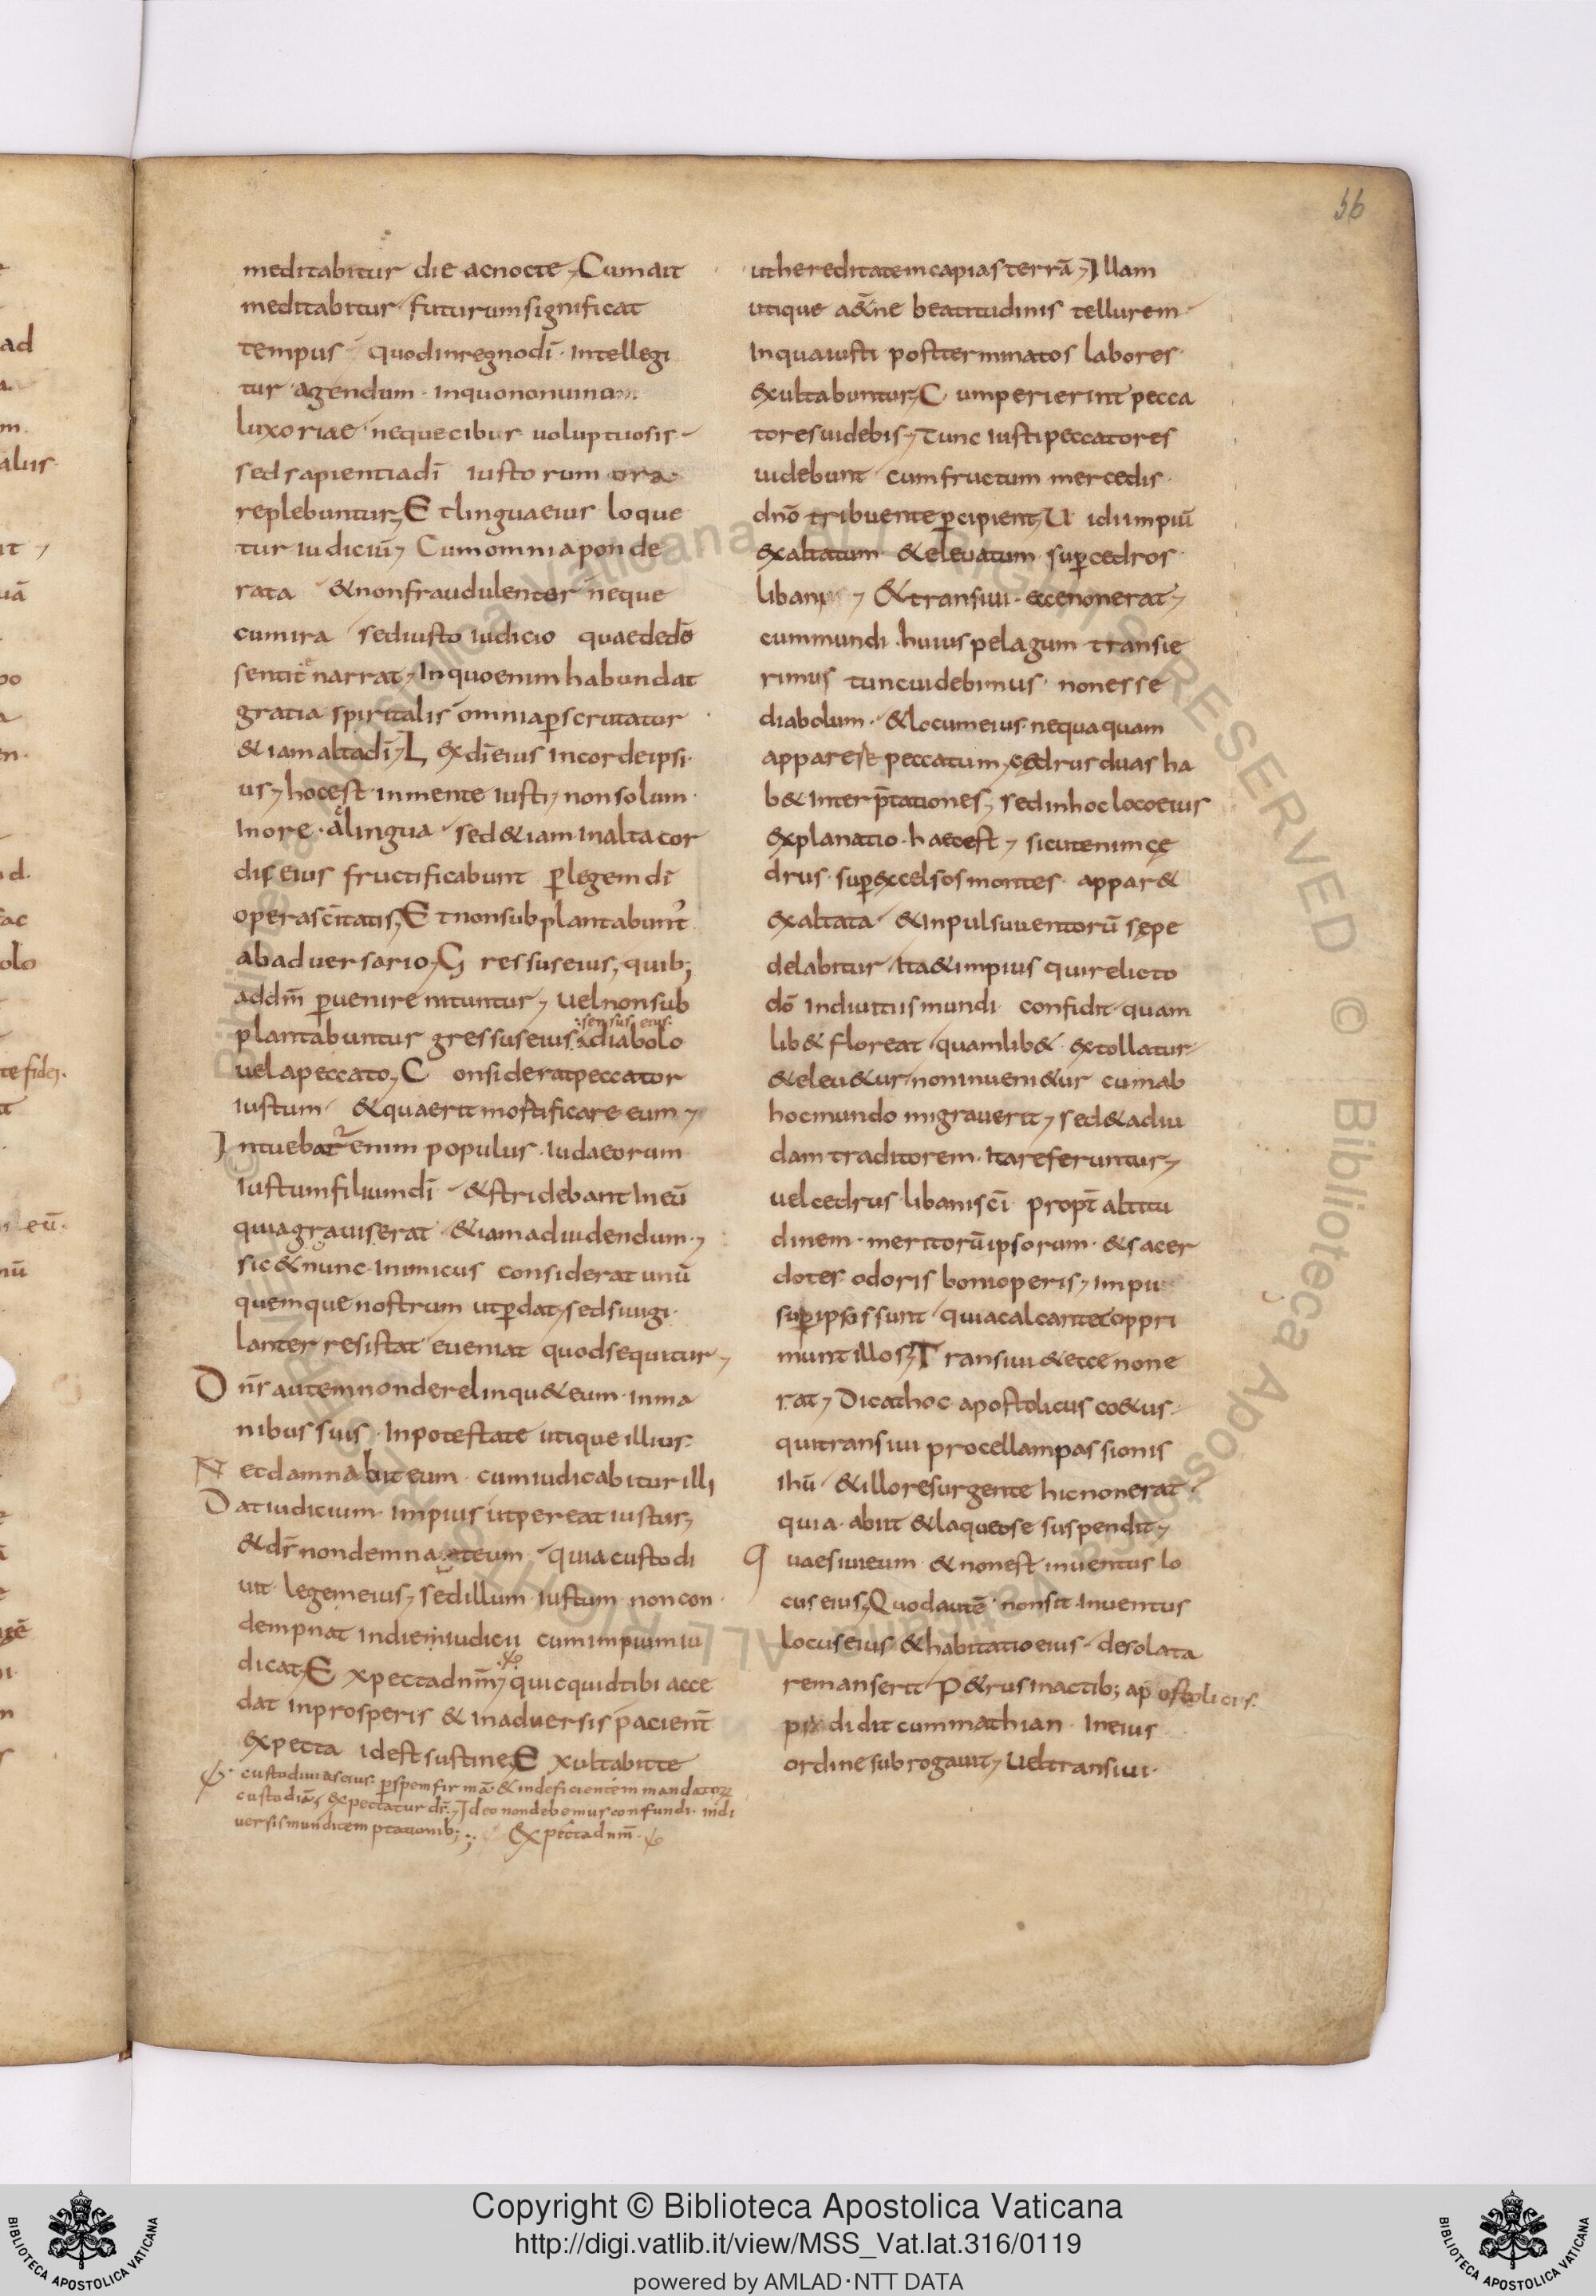 56
meditabitur die ac nocte, Cum ait
meditabitur futurum significat
tempus quod in regno dī. intellegi
tur agendum. in quo non uinum
luxoriae neque cibus uoluptuosis
sed sapientia dī iustorum ora
replebuntur, Et lingua eius loque
tur iudiciū, Cum omnia ponde
rata & non fraudulenter neque
cum ira sed iusto iudicio quae de dō
sentit narrat, In quo enim habundat
gratia spiritalis omnia ꝑscrutatur
& iam alta dī, Lex dī eius in corde ipsi
us, hoc est in mente iusti, non solum
in ore. ac lingua sed & iam in alta cor
dis eius fructificabunt ꝑ legem dī
opera scītatis, Et non subplantabunt̉
ab aduersario, Gressus eius, quib;
ad dm̄ ꝑuenire nituntur, uel non sub
plantabuntur gressus eius a diabolo
:sensus eius:
uel a peccato, Considerat peccator
iustum & quaerit mortificare eum,
Intuebat̉ enim populus iudaeorum
iustum filium dī & stridebant in eū
quia grauis erat & iam ad uidendum,
sic & nunc inimicus considerat unū
quemque nostrum ut ꝑdat, sed si uigi
lanter resistat eueniat quod sequitur,
Dn̄s autem non derelinqu& eum in ma
nibus suis. In potestate utique illius.
Nec damnabit eum cum iudicabitur illi
Dat iudicium impius ut pereat iustus,
& ds̄ non demnat eum quia custodi
uit legem eius, sed illum iustum non con
dempnat in diem iudicii cum impium iu
dicat, Expecta dnm̄, quicquid tibi acce
dat in prosperis & in aduersis pacient̄
expecta id est sustine, Exultabit te
custodi uias eius. ꝑ spem firmā. & indeficientem mandatoꝝ
custodiā, expectatur ds̄, Ideo non debemus confundi. in di
uersis mundi temptationib;, Expecta dnm̄.
ut hereditatem capias terrā, Illam
utique a&̄ne beatitudinis tellurem
In qua iusti post terminatos labores
exultabuntur, Cum perierint pecca
tores uidebis, Tunc iusti peccatores
uidebunt cum fructum mercedis
dnō tribuente ꝑcipient, Uidi impiū
exaltatum & eleuatum suꝑ cedros
libani, & transiui. ecce non erat,
cum mundi huius pelagum transie
rimus tunc uidebimus non esse
diabolum. & locum eius nequaquam
apparere peccatum, cedrus duas ha
b& interp̄tationes, sed in hoc loco eius
explanatio haec est, sicut enim cę
drus suꝑ excelsos montes appar&
exaltata & inpulsu uentorū sępe
delabitur Ita & impius qui relicto
dō in diuitiis mundi confidit quam
lib& floreat quamlib& extollatur
& eleu&ur non inueni&ur cum ab
hoc mundo migrauerit, sed & ad iu
dam traditorem. Ita referuntur,
uel cedrus libani scī propt̄ altitu
dinem meritorū ipsorum. & sacer
dotes odoris boni operis, impii
suꝑ ipsos sunt quia calcant & oppri
munt illos, Transiui & ecce non e
rat, Dicat hoc apostolicus co&us
qui transiui procellam passionis
ihū & illo resurgente hic non erat
quia abiit & laqueo se suspendit,
Quaesiui eum & non est inuentus lo
cus eius, Quod autē non sit inuentus
locus eius & habitatio eius desolata
remanserit P&rus in actib; apostolicis.
prodidit cum mathian. In eius
ordine subrogauit, uel transiui.
Copyright © Biblioteca Apostolica Vaticana
http://digi.vatlib.it/view/MSS_Vat.lat.316/0119
powered by AMLAD·NTT DATA